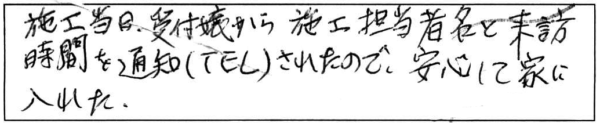 施工当日、受付嬢から施工担当者名と来訪
時間を通知(TEL)されたので、安心して家に
入れた.